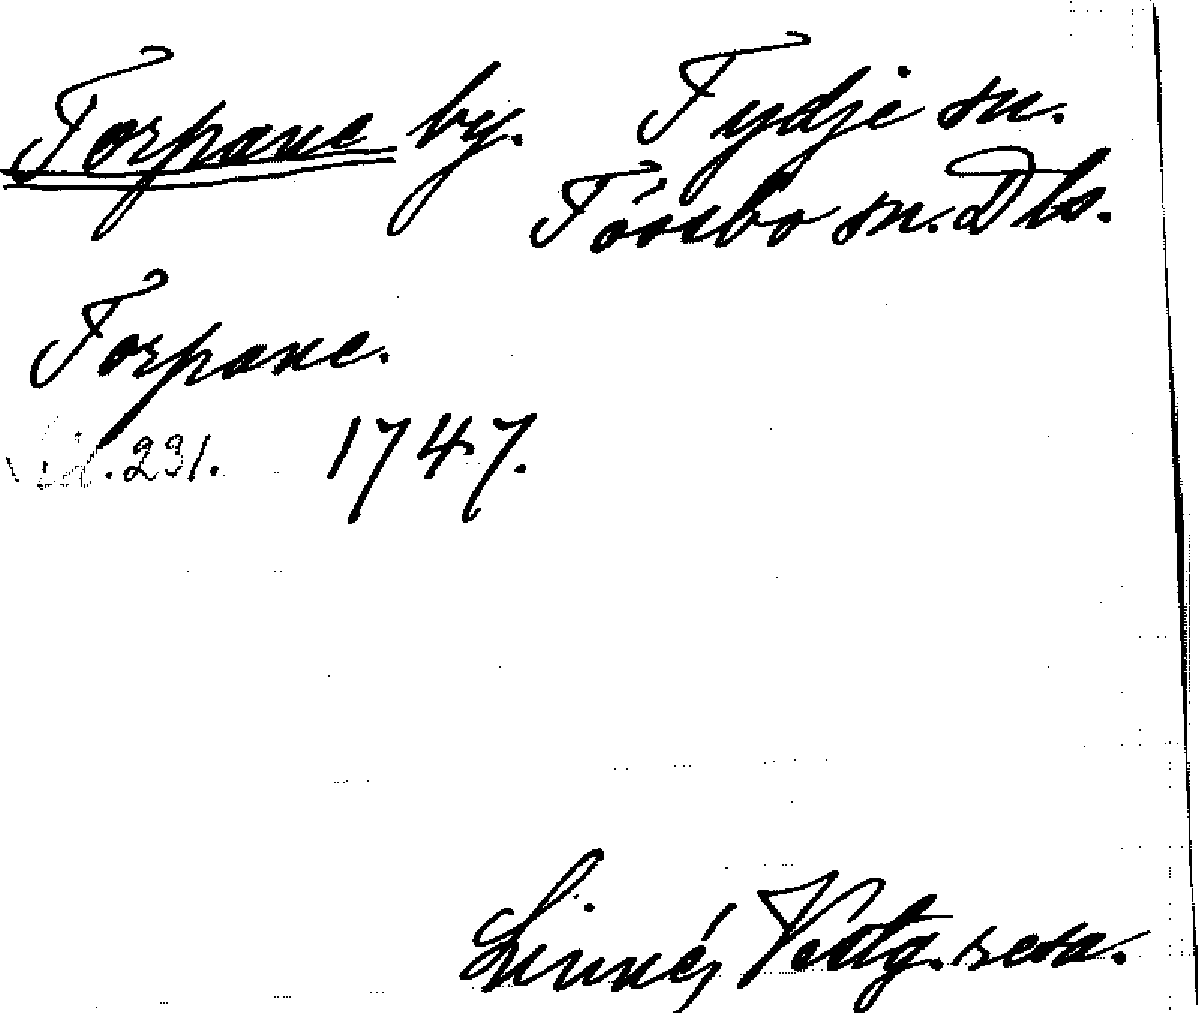 Torpane by. Tydje sn.
Tössbo sn. Dls.
Torpane.
Sid. 231. 1747.
Linné, Västg. resa.